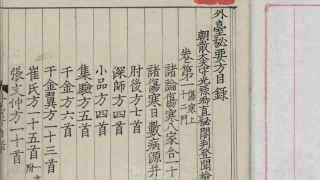 外臺祕要方目錄
朝散大夫守光祿卿直祕閣判登聞檢
卷第一 傷寒上 一十二門
諸論傷寒八家合一十
諸傷寒日數病源并
肘後方七首
深師方四首
小品方四首
集驗方五首
千金方六首
千金翼方一十三首
崔氏方一十五首 附一
張文仲方一十首